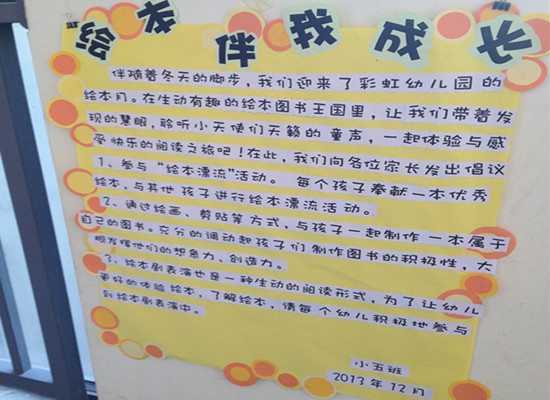 绘本伴我成长
伴随着冬天的脚步，我们迎来了彩虹幼儿园的
绘本月。在生动有趣的绘本图书王国里，让我们带着发
现的慧眼，聆听小天使们天籁的童声，一起体验与感
受快乐的阅读之旅吧！在此，我们向各位家长发出倡议
1、参与“绘本漂流”活动。 每个孩子奉献一本优秀
绘本，与其他孩子进行绘本漂流活动。
2、通过绘画、剪贴等方式，与孩子一起制作一本属于
自己的图书。充分的调动起孩子们制作图书的积极性，大
胆发挥他们的想象力、创造力。
3、绘本剧表演也是一种生动的阅读形式，为了让幼儿
更好的体验绘本，了解绘本，请每个幼儿积极地参与
到绘本剧表演中。
小五班
2013年12月